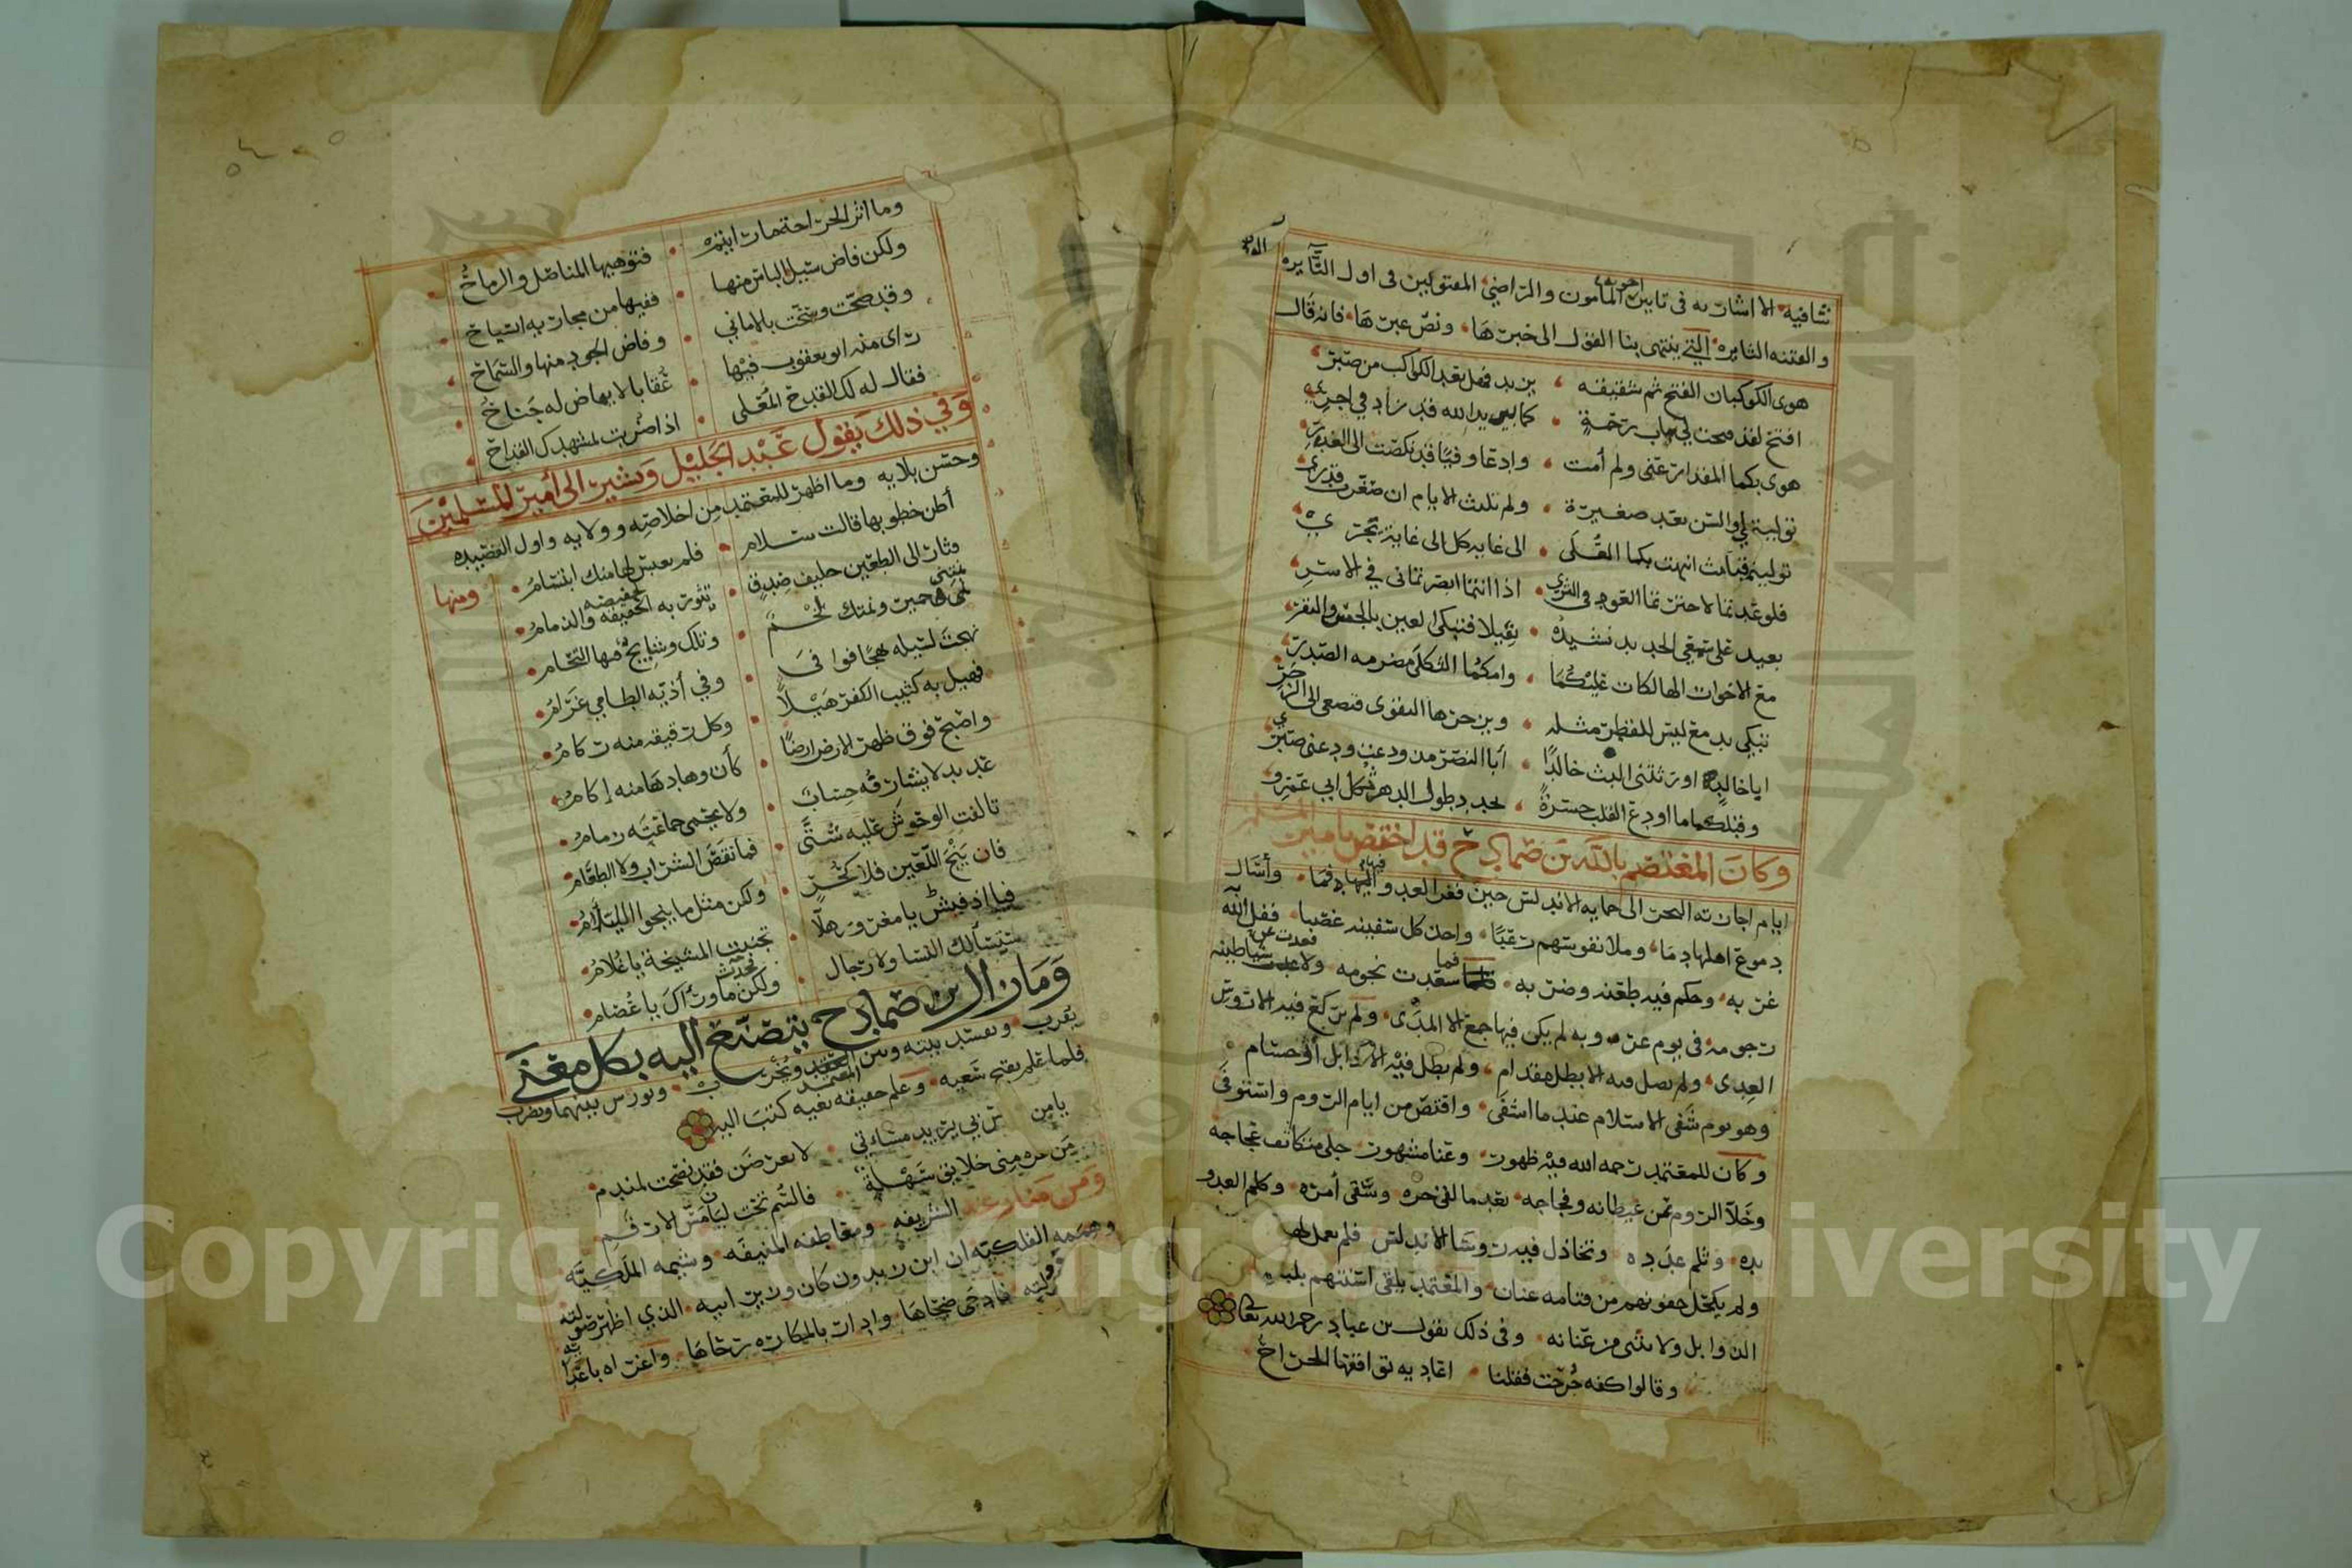 شافيه الا اشارته فى تابين المأمون والراضي المقتولين فى اول الثايره
والفتنه الثايره التي ينتهى بنا القول الى خبرها ونص عبرها فانه قال
هوى الكوكبان الفتح ثم شقيقه يزيد فهل بعد الكواكب من صبر
افتح لقد فتحت لي باب رحمة كما بيزيد الله قد زاد في اجري
هوى بكما المقدار عنى ولم أمت وادعا وفيا قد نكصت الى الغدر
توليتما والسن بعد صغيرة ولم تلبث الايام ان صغرت قدري
توليتما حين انتهت بكما العلى الى غاية كل الى غاية يجري
فلو عدتما لاخترتما العود فى الثرى اذا انتما ابصرتمانى في الاسر
يعيد على سمعي الحديد نشيده ثقيلا فتبكى العين بالجس والنقر
مع الاخوات الهالكات عليكما وامكما الثكلى مضرمه الصدر
تبكي بدمع ليس للقطر مثله ويزجرها التقوى فتصغى الى الزجر
ابا خالد اورثتنى البث خالدا أبا النصر مذ ودعت ودعنى صبري
وقبلكما ما اودع القلب حسرة تجدد طول الدهر ثكل ابي عمرو
وكان المعتصم بالله بن صمادح قد اختص بامير المسلمين
ايام اجازته البحر الى حمايه الاندلس حين فغر العدو فيها فما وأسال
دموع اهلها دما وملا نفوسهم رعبا واخذ كل سفينه غصبا ففل الله
غربه وحكم فيه طعنه وضربه فما سعدت نجومه ولا عدت شياطينه
رجومه فى يوم عروبه لم يكن فيها جمع الا المدى ولم يركع فيه الا رؤس
العدى ولم يصل فيه الا بطل مقدام ولم يطل فيه الا ذابل أو حسام
وهو يوم شفى الاسلام عند ما اشفى واقتص من ايام الروم واستوفى
وكان للمعتمد رحمه الله فيه ظهور وعنا مشهور جلى متكاثف عجاجه
وخلا الروم من غيطانه وفجاجه بعد ما لقى حره وسقى أمره وكلم العدو
يده وثلم عدده وتخاذل فيه رؤسا الاندلس فلم يعمل لها
ولم يكحل جفونهم من قتامه عنان والمعتمد يلقى اسنتهم بلبه
الذوابل ولا يثنى من عنانه وفى ذلك يقول بن عباد رحمه الله تعالى
وقالوا كفه جرحت فقلنا اعاديه تواقعها الجراح
وما اثر الجراحة ما رايتم فتوهيها المناصل والرماح
ولكن فاض سيل الباس منها ففيها من مجاريه انسياح
وقد صحت وسحت بالاماني وفاض الجود منها والسماح
راى منه ابو يعقوب فيها عقابا لا يهاض له جناح
فقال له لك القدح المعلى اذا ضربت لمشهدك القداح
وفي ذلك يقول عبد الجليل ويشير الى أمير المسلمين
وحسن بلايه وما اظهر للمعتمد من اخلاصه وولايه واول القصيده
أظن خطوبها قالت سلام فلم يعبس لها منك ابتسام ومنها
وثار الى الطعين حليف صدق تثور به الحفيظه والذمام
نمى حمير ونمتك لخم وتلك وشايج فيها التحام
نهجت لسبيله نهجا فوافى وفي أذيه الطامي غرام
فهيل به كثيب الكفر هيلا وكل رقيقه منه ركام
واصبح فوق ظهر الارض ارضا كأن وهادها منه إكام
عديد لا يشارفه حساب ولا يحصى جماعته زمام
تالفت الوحوش عليه شتى فما نقص الشراب ولا الطعام
فان ينج اللعين فلا كحر ولكن مثل ما ينجوا الليام
فيا اذفونش يا مغرور هلا تجنبت المشيخة يا غلام
ستسألك النسا ولا رجال ولكن ما وراك يا عصام
وما زال ابن صمادح يتصنع اليه بكل معنى
يقرب ويفسد بينه وبين المعتمد ويخرب ويورس بينهما ويضرب
فلما علم بقبح سعيه وعلم حقيقه بغيه كتب اليه
يا من بي يريد مساءتي لا تعرضن فقد نصحت لمندم
من غره منى خلايق سهلة فالسم تحت ليان مس الارقم
ومن منازعه الشريفه ومقاطعه المنيفه وشيمه الملكيه
وهممه الفلكيه ان ابن زيدون كان وزير ابيه الذي اظهر صولته
ودولته فادجى ضحاها وادار بالمكاره رحاها واغراه باعدا